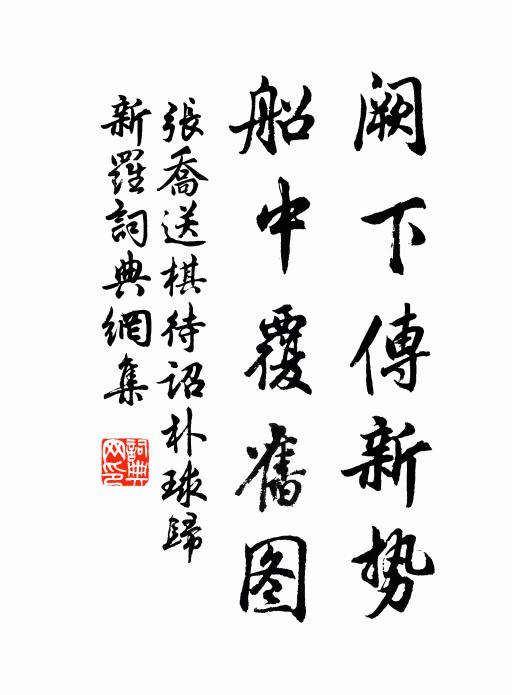 闕下傳新勢
船中覆舊图
張喬送棋待詔朴球歸
新羅詞典網集
詞典网印